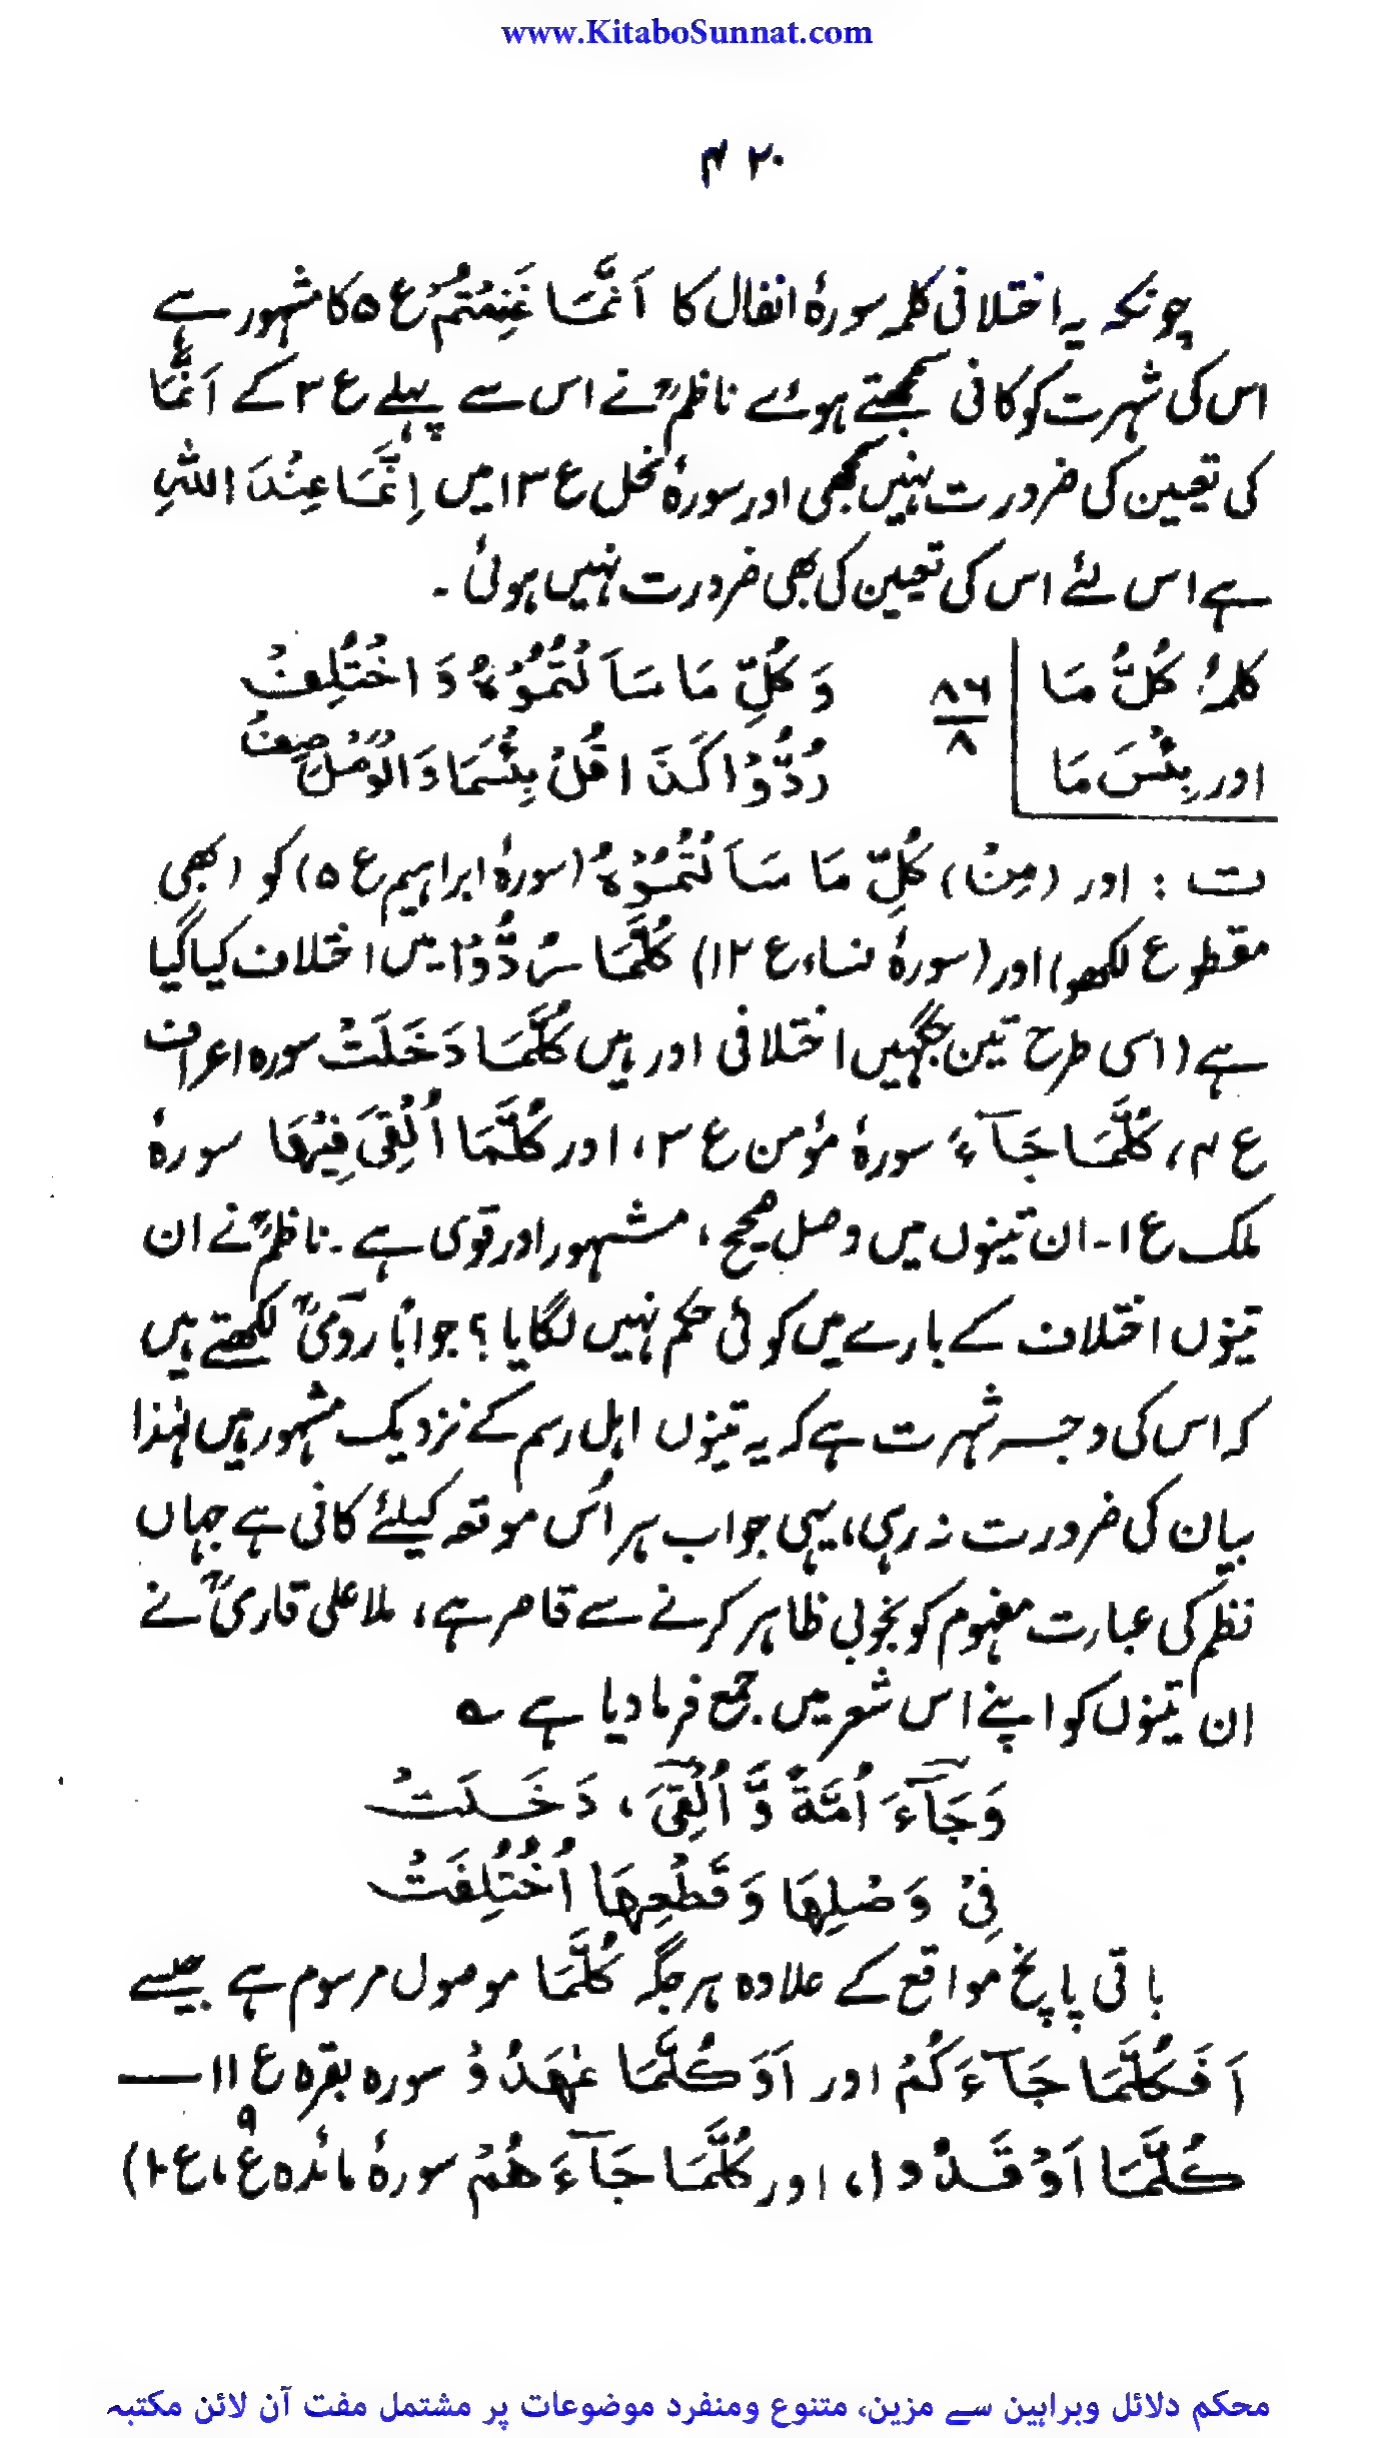 www.KitaboSunnat.com
۲۰۴
چونکہ یہ اختلافی کلمہ سورۂ انفال کا اَنَّمَا غَنِمْتُمْ ع ۵ کا مشہور ہے
اس کی شہرت کو کافی سمجھتے ہوئے ناظمؒ نے اس سے پہلے ع ۳ کے اَنَّمَا
کی تعیین کی ضرورت نہیں سمجھی اور سورۂ نحل ع ۱۳ میں اِنَّمَا عِنْدَ اللّٰہِ
ہے اس لئے اس کی تعیین کی بھی ضرورت نہیں ہوئی ۔
کلمۂ کُلُّ مَا
اور بِئْسَ مَا
۸۶
۸
وَ کُلِّ مَا سَاَلْتُمُوْہُ وَ اخْتُلِفْ
رُدُّوْا کَذَا قُلْ بِئْسَمَا وَالْوَصْلَ صِفْ
ت : اور (مِنْ) کُلِّ مَا سَاَلْتُمُوْہُ (سورۂ ابراہیم ع ۵) کو (بھی
مقطوع لکھو) اور (سورۂ نساء ع ۱۲) کُلَّمَا رُدُّوْا میں اختلاف کیا گیا
ہے (اسی طرح تین جگہیں اختلافی اور ہیں کُلَّمَا دَخَلَتْ سورہ اعراف
ع ۴، کُلَّمَا جَآءَ سورۂ مؤمن ع ۳، اور کُلَّمَا اُلْقِیَ فِیْھَا سورۂ
ملک ع ۱۔ ان تینوں میں وصل صحیح، مشہور اور قوی ہے۔ ناظمؒ نے ان
تینوں اختلاف کے بارے میں کوئی حکم نہیں لگایا ؟ جواباً رومیؒ لکھتے ہیں
کہ اس کی وجہ شہرت ہے کہ یہ تینوں اہل رسم کے نزدیک مشہور ہیں لہٰذا
بیان کی ضرورت نہ رہی، یہی جواب ہر اُس موقعہ کیلئے کافی ہے جہاں
نظم کی عبارت مفہوم کو بخوبی ظاہر کرنے سے قاصر ہے، ملا علی قاریؒ نے
ان تینوں کو اپنے اس شعر میں جمع فرما دیا ہے ؎
وَجَآءَ اُمَّۃً وَّ اُلْقِیَ، دَخَلَتْ
فِیْ وَصْلِھَا وَقَطْعِھَا اُخْتُلِفَتْ
باقی پانچ مواقع کے علاوہ ہر جگہ کُلَّمَا موصول مرسوم ہے جیسے
اَفَکُلَّمَا جَآءَکُمْ اور اَوَکُلَّمَا عٰھَدُوْ سورہ بقرہ ع ۱۱ —
کُلَّمَا اَوْقَدُوا، اور کُلَّمَا جَآءَھُمْ سورۂ مائدہ ع ۹، ع ۱۰)
محکم دلائل وبراہین سے مزین، متنوع ومنفرد موضوعات پر مشتمل مفت آن لائن مکتبہ